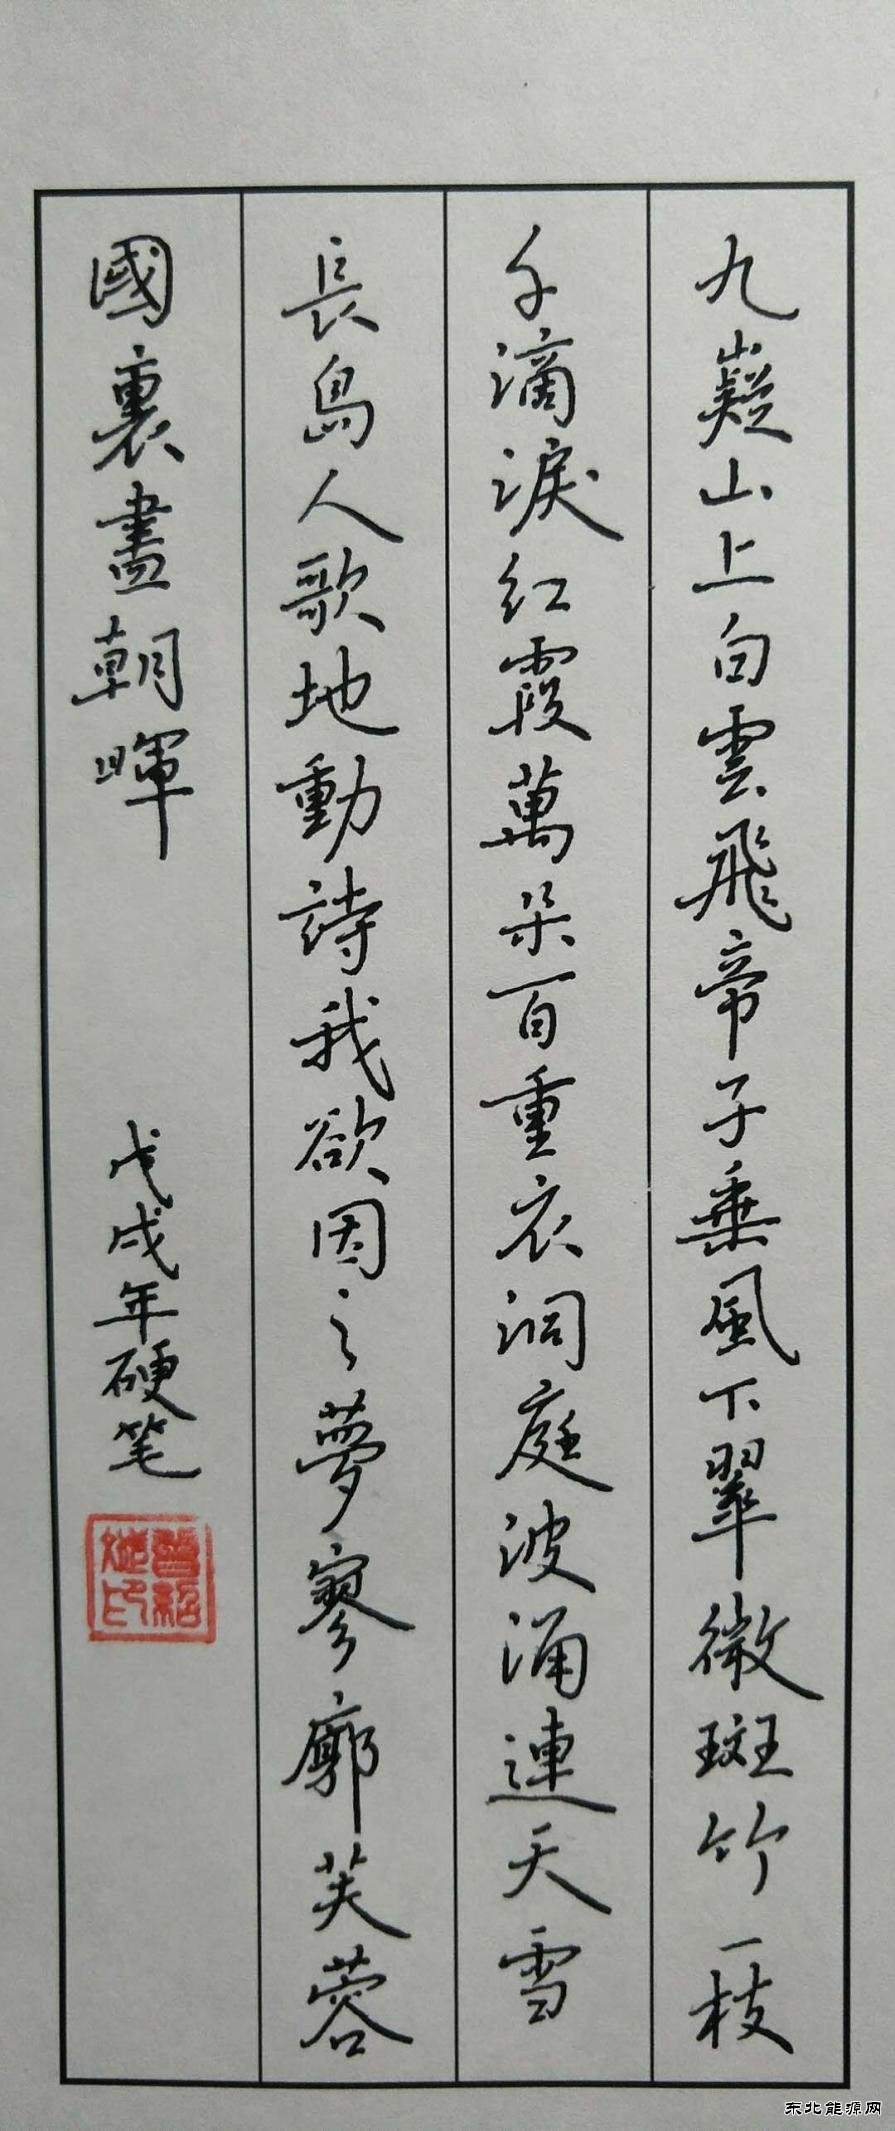 九嶷山上白雲飛帝子乘風下翠微斑竹一枝
千滴淚紅霞萬朵百重衣洞庭波涌連天雪
長島人歌地動詩我欲因之夢寥廓芙蓉
國裏盡朝暉
戊戌年硬笔
东北能源网